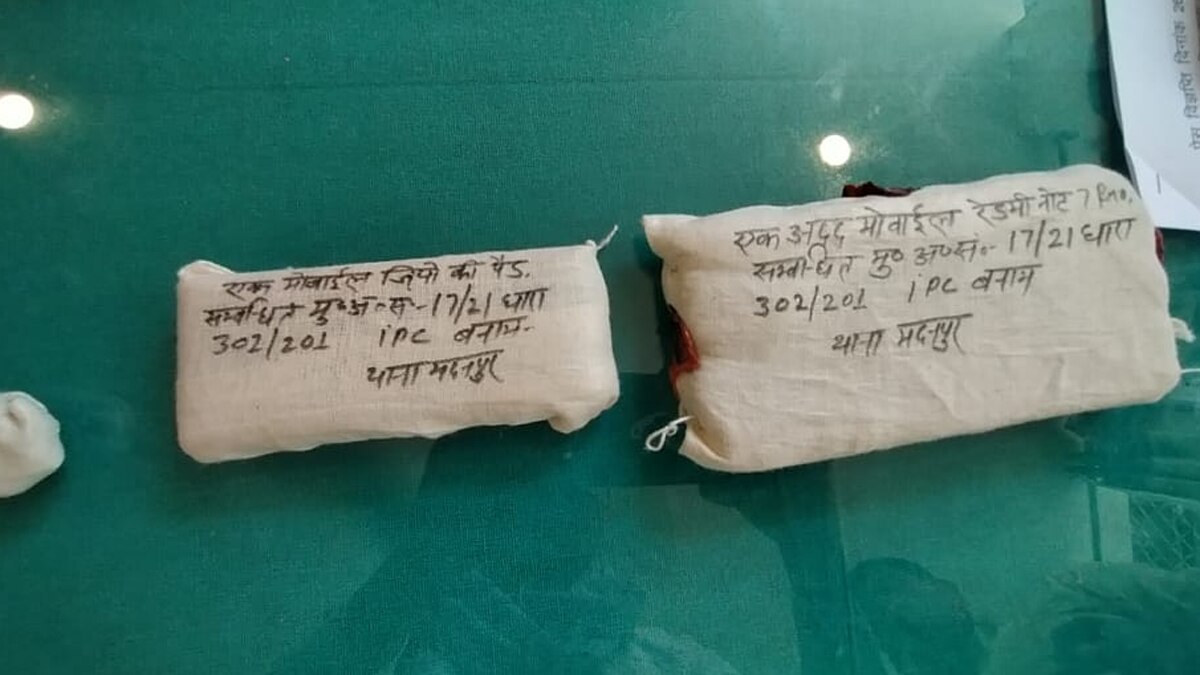 एक मोबाईल जियो की पैड.
सम्बन्धित मु०अ०सं०-17/21 धारा
302/201 IPC बनाम-
थाना मदनपुर
एक अदद मोबाईल रेडमी नोट 7 Pro.
सम्बन्धित मु० अ०सं०- 17/21 धारा
302/201 IPC बनाम
थाना मदनपुर
प्रेस विज्ञप्ति दिनांक